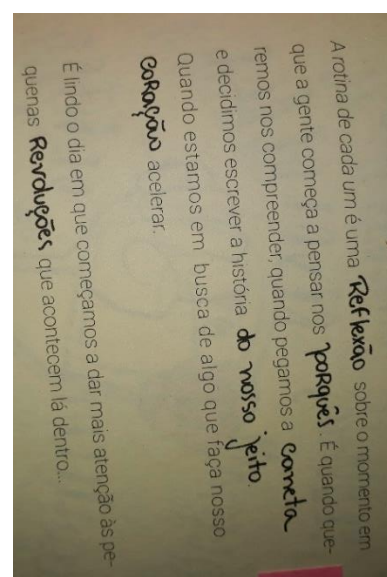 A rotina de cada um é uma Reflexão sobre o momento em
que a gente começa a pensar nos porquês. É quando que-
remos nos compreender, quando pegamos a caneta
e decidimos escrever a história do nosso jeito.
Quando estamos em busca de algo que faça nosso
coração acelerar.
É lindo o dia em que começamos a dar mais atenção às pe-
quenas Revoluções que acontecem lá dentro...